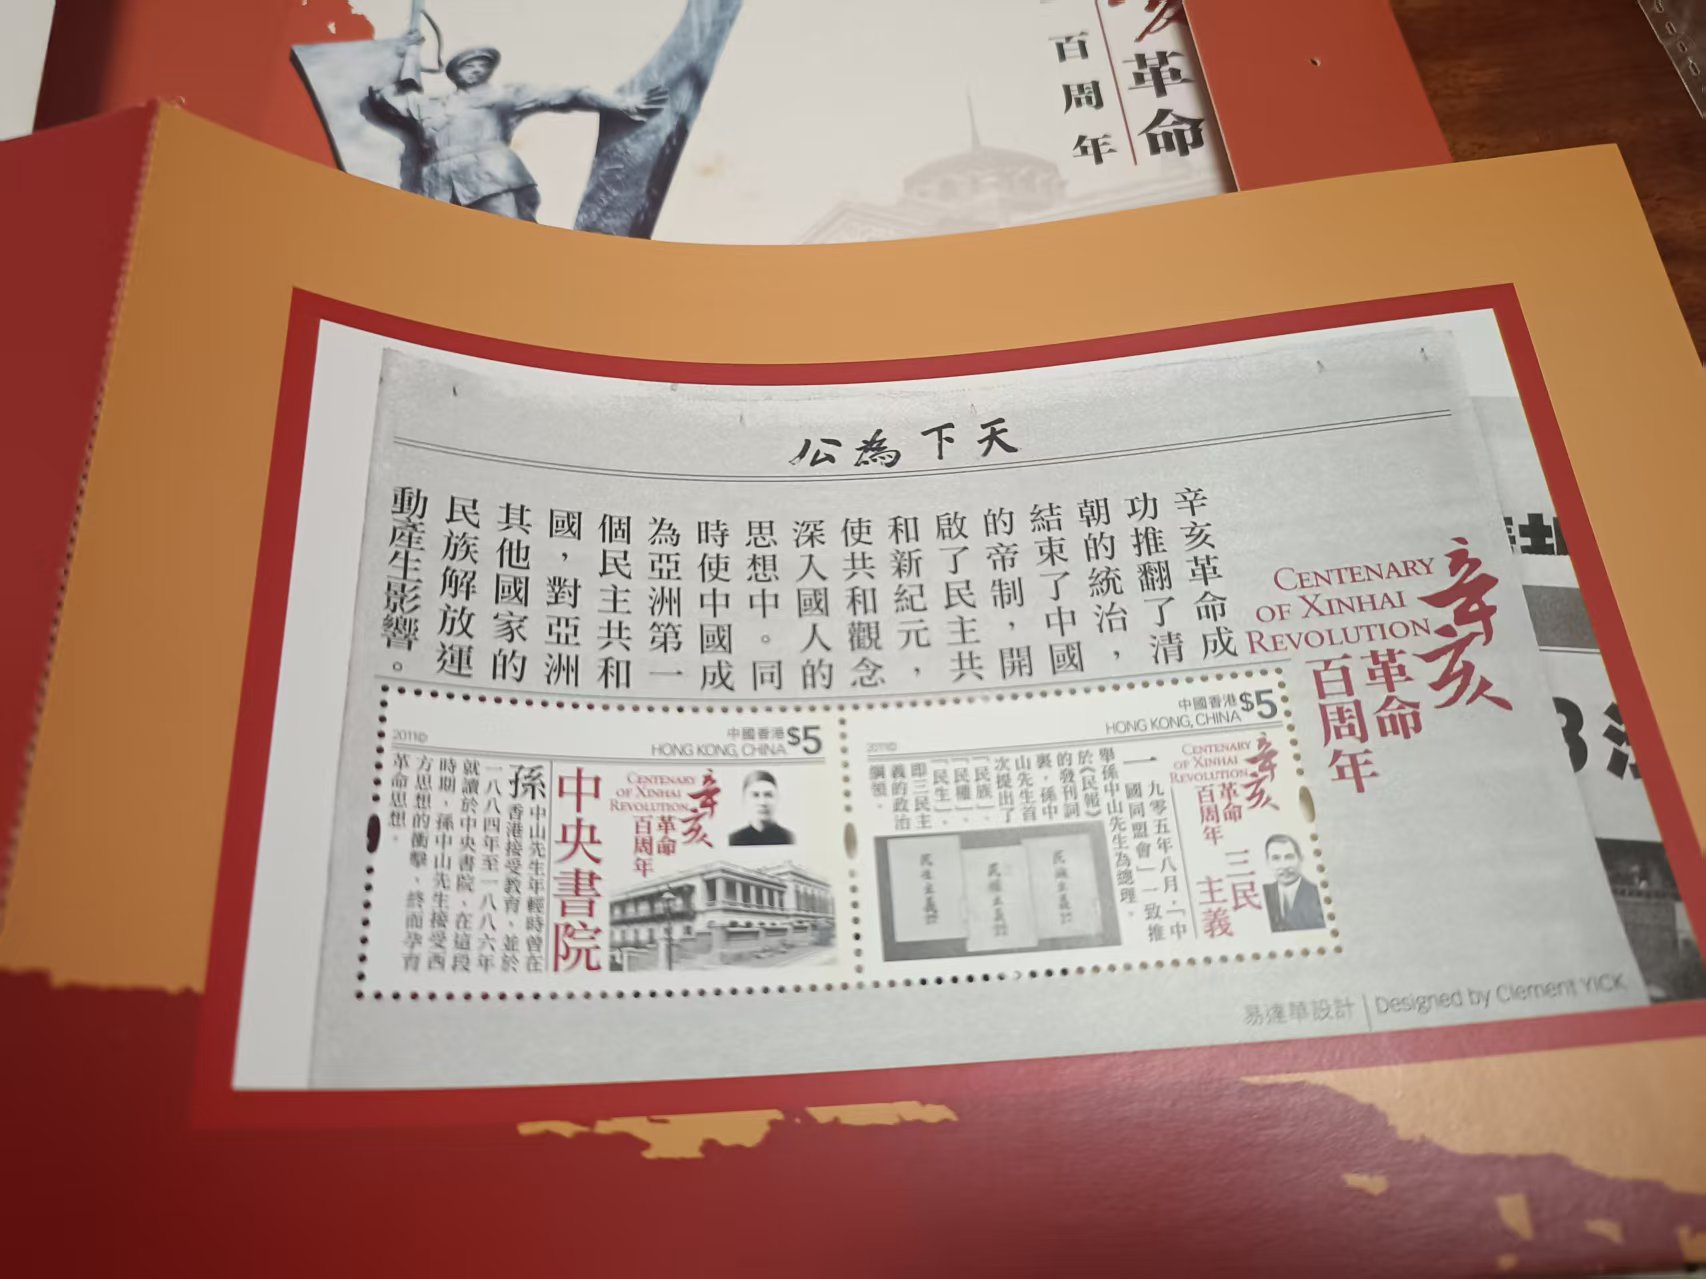 百周年
革命
天下為公
辛亥革命成
功推翻了清
朝的統治，
結束了中國
的帝制，開
啟了民主共
和新紀元，
使共和觀念
深入國人的
思想中。同
時使中國成
為亞洲第一
個民主共和
國，對亞洲
其他國家的
民族解放運
動產生影響。
CENTENARY
OF XINHAI
REVOLUTION
辛亥
革命
百周年
中國香港 $5
HONG KONG, CHINA
2011©
CENTENARY
OF XINHAI
REVOLUTION
辛亥
革命
百周年
三民
主義
一九零五年八月，「中
國同盟會」一致推
舉孫中山先生為總理。
於《民報》
的發刊詞
裏，孫中
山先生首
次提出了
「民族」、
「民權」、
「民生」，
即三民主
義的政治
綱領。
中國香港 $5
HONG KONG, CHINA
2011©
CENTENARY
OF XINHAI
REVOLUTION
辛亥
革命
百周年
中央書院
孫中山先生年輕時曾在
香港接受教育，並於
一八八四年至一八八六年
就讀於中央書院，在這段
時期，孫中山先生接受西
方思想的衝擊，終而孕育
革命思想。
易達華設計 | Designed by Clement YICK